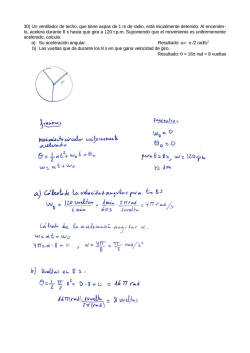 30) Un ventilador de techo, que tiene aspas de 1 m de radio, está inicialmente detenido. Al encender-
lo, acelera durante 8 s hasta que gira a 120 r.p.m. Suponiendo que el movimiento es uniformemente
acelerado, calcula:
a) Su aceleración angular. Resultado: α= π /2 rad/s²
b) Las vueltas que da durante los 8 s en que gana velocidad de giro.
Resultado: θ = 16π rad = 8 vueltas
Ecuaciones
movimiento circular uniformemente
acelerado
θ = ½ α t² + w₀ t + θ₀
w = α t + w₀
Parámetros:
w₀ = 0
θ₀ = 0
para t = 8 s, w = 120 rpm
r = 1m
a) Cálculo de la velocidad angular para t = 8 s
w₈ = 120 vueltas / 1 min · 1 min / 60 s · 2π rad / 1 vuelta = 4π rad/s
Cálculo de la aceleración angular α.
w = α t + w₀
4π = α · 8 + 0 ; α = 4π / 8 = π / 2 rad/s²
b) Vueltas en 8 s:
θ = ½ π/2 8² + 0 · 8 + 0 = 16 π rad
16 π (rad) · 1 vuelta / 2π (rad) = 8 vueltas